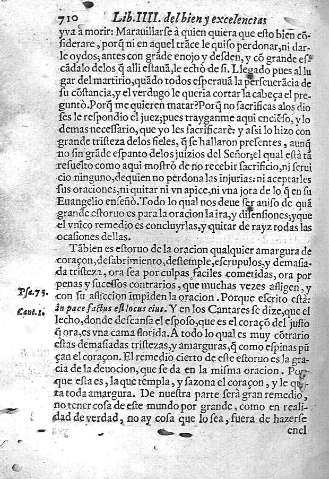 710 Lib. IIII. del bien y excelencias
yva à morir: Marauillarse à quien quiera que esto bien cõ-
siderare, porq̃ ni en aquel trãce le quiso perdonar, ni dar-
le oydos; antes con grãde enojo y desden, y cõ grande es-
cãdalo delos q̃ alli estauã, le echò de si. Llegado pues al lu-
gar del martirio, quãdo todos esperauã la perseuerãcia de
su cõstancia, y el verdugo le queria cortar la cabeça el pre-
guntò. Porq̃ me quieren matar? Porq̃ no sacrificas alos dio
ses le respondio el juez; pues trayganme aqui encièso, y lo
demas necessario, que yo les sacrificarè: y assi lo hizo con
grande tristeza delos fieles, q̃ se hallaron presentes, aunq̃
no sin grãde espanto delos juizios del Señor; el qual està tã
resuelto como aqui mostrò de no recebir sacrificio, ni serui
cio ninguno, de quien no perdona las injurias: ni aceptarles
sus oraciones; ni quitar ni vn apice, ni vna jota de lo q̃ en su
Euangelio enseñò. Todo lo qual nos deue ser auiso de quã
grande estoruo es para la oracion la ira, y disensiones; y que
el vnico remedio es concluyrlas, y quitar de rayz todas las
ocasiones dellas.
Tãbien es estoruo de la oracion qualquier amargura de
coraçon, desabrimiento, destemple, escrupulos, y demasia-
da tristeza, ora sea por culpas faciles cometidas, ora por
penas y sucessos contrarios, que muchas vezes afligen, y
Psa. 75. con su afliccion impiden la oracion. Porque escrito està:
Cant. 1. in pace factus est locus eius. Y en los Cantares se dize, que el
lecho, donde descansa el esposo, que es el coraçõ del justo
q̃ ora, es vna cama florida. A todo lo qual es muy cotrario
estas demasiadas tristezas, y amarguras, q̃ como espinas pũ
çan el coraçon. El remedio cierto de este estoruo es la gra-
cia de la deuocion, que se da en la misma oracion. Por
que esta es, la que tẽmpla, y sazona el coraçon, y le qui
ta toda amargura. De nuestra parte serà gran remedio,
no tener cosa de este mundo por grande, como en reali-
dad de verdad, no ay cosa que lo sea, fuera de hazerse
enel